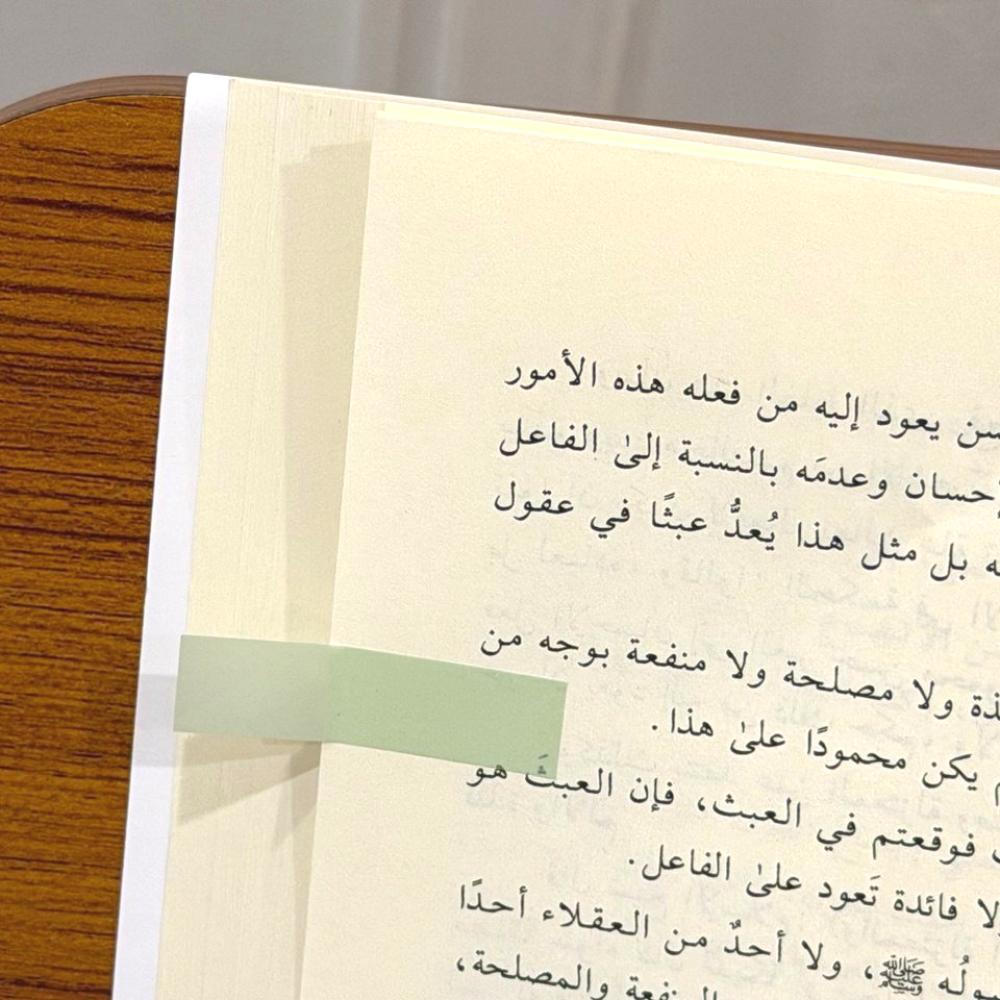 يعود إليه من فعله هذه الأمور
وعدمَه بالنسبة إلىٰ الفاعل
بل مثل هذا يُعدُّ عبثًا في عقول
ولا مصلحة ولا منفعة بوجه من
يكن محمودًا علىٰ هذا.
فوقعتم في العبث، فإن العبثَ هو
فائدة تَعود علىٰ الفاعل.
ﷺ، ولا أحدٌ من العقلاء أحدًا
والمصلحة،